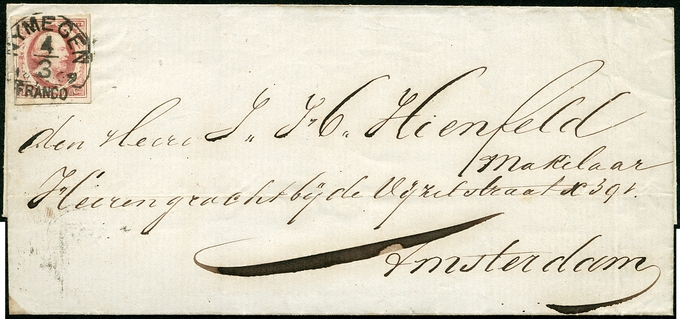 NYMEGEN
4
3
FRANCO
den Heere J. H. Hienfeld
Makelaar
Heerengracht bij de Vijzelstraat X 391.
Amsterdam